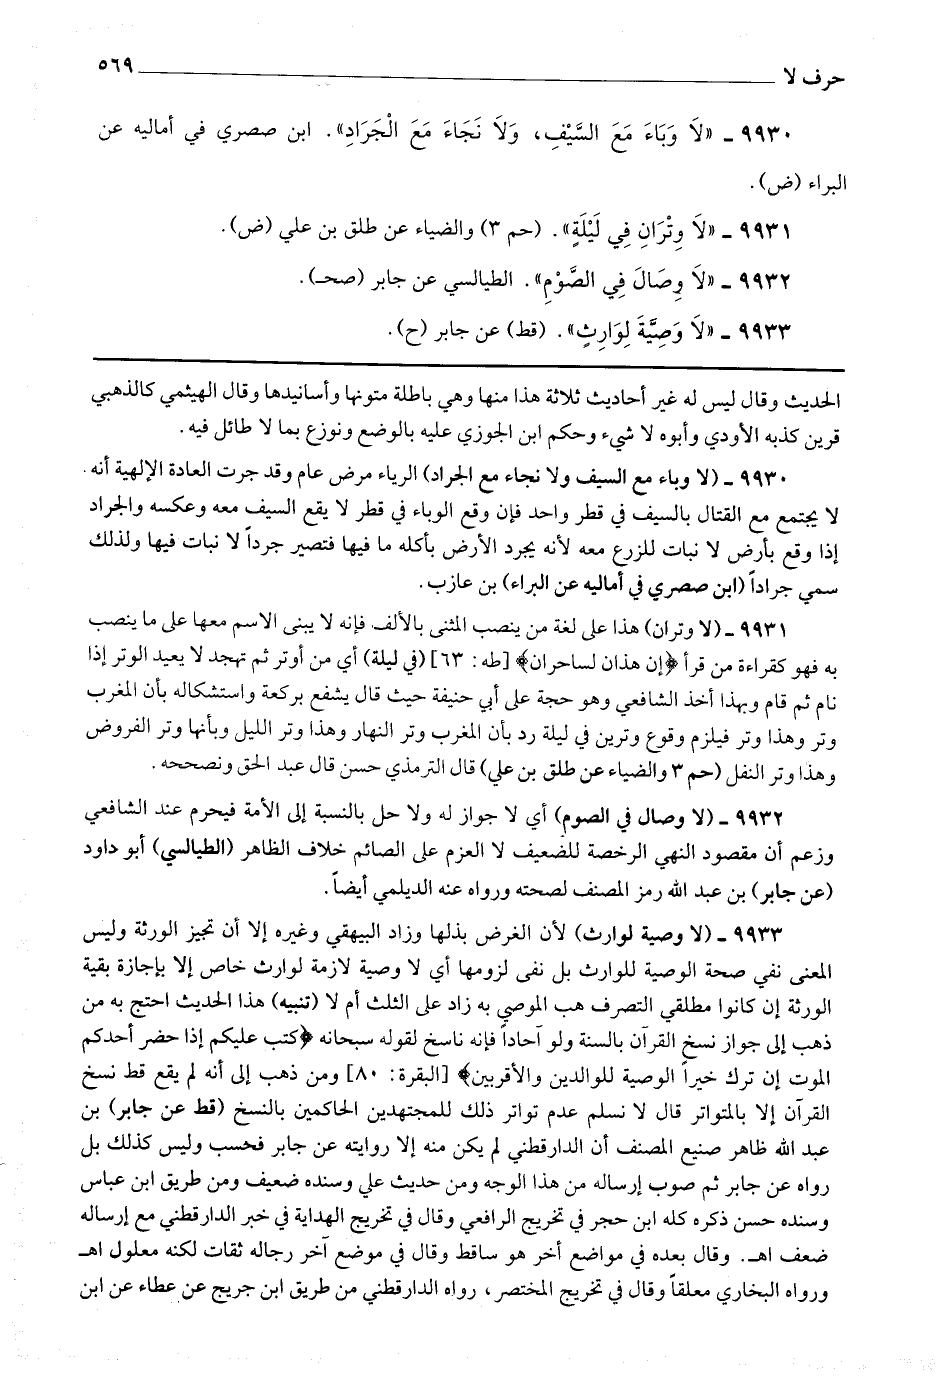 حرف لا ٥٦٩
٩٩٣٠ ـ «لَا وَبَاءَ مَعَ السَّيْفِ، وَلَا نَجَاءَ مَعَ الْجَرَادِ». ابن صصري في أماليه عن
البراء (ض).
٩٩٣١ ـ «لَا وِتْرَانِ فِي لَيْلَةٍ». (حم ٣) والضياء عن طلق بن علي (ض).
٩٩٣٢ ـ «لَا وِصَالَ فِي الصَّوْمِ». الطيالسي عن جابر (صحـ).
٩٩٣٣ ـ «لَا وَصِيَّةَ لِوَارِثٍ». (قط) عن جابر (ح).
الحديث وقال ليس له غير أحاديث ثلاثة هذا منها وهي باطلة متونها وأسانيدها وقال الهيثمي كالذهبي
قرين كذبه الأودي وأبوه لا شيء وحكم ابن الجوزي عليه بالوضع ونوزع بما لا طائل فيه.
٩٩٣٠ ـ (لا وباء مع السيف ولا نجاء مع الجراد) الرياء مرض عام وقد جرت العادة الإلهية أنه
لا يجتمع مع القتال بالسيف في قطر واحد فإن وقع الوباء في قطر لا يقع السيف معه وعكسه والجراد
إذا وقع بأرض لا نبات للزرع معه لأنه يجرد الأرض بأكله ما فيها فتصير جرداً لا نبات فيها ولذلك
سمي جراداً (ابن صصري في أماليه عن البراء) بن عازب.
٩٩٣١ ـ (لا وتران) هذا على لغة من ينصب المثنى بالألف فإنه لا يبنى الاسم معها على ما ينصب
به فهو كقراءة من قرأ ﴿إن هذان لساحران﴾ [طه: ٦٣] (في ليلة) أي من أوتر ثم تهجد لا يعيد الوتر إذا
نام ثم قام وبهذا أخذ الشافعي وهو حجة على أبي حنيفة حيث قال يشفع بركعة واستشكاله بأن المغرب
وتر وهذا وتر فيلزم وقوع وترين في ليلة رد بأن المغرب وتر النهار وهذا وتر الليل وبأنها وتر الفروض
وهذا وتر النفل (حم ٣ والضياء عن طلق بن علي) قال الترمذي حسن قال عبد الحق ونصححه.
٩٩٣٢ ـ (لا وصال في الصوم) أي لا جواز له ولا حل بالنسبة إلى الأمة فيحرم عند الشافعي
وزعم أن مقصود النهي الرخصة للضعيف لا العزم على الصائم خلاف الظاهر (الطيالسي) أبو داود
(عن جابر) بن عبد الله رمز المصنف لصحته ورواه عنه الديلمي أيضاً.
٩٩٣٣ ـ (لا وصية لوارث) لأن الغرض بذلها وزاد البيهقي وغيره إلا أن تجيز الورثة وليس
المعنى نفي صحة الوصية للوارث بل نفى لزومها أي لا وصية لازمة لوارث خاص إلا بإجازة بقية
الورثة إن كانوا مطلقي التصرف هب الموصي به زاد على الثلث أم لا (تنبيه) هذا الحديث احتج به من
ذهب إلى جواز نسخ القرآن بالسنة ولو آحاداً فإنه ناسخ لقوله سبحانه ﴿كتب عليكم إذا حضر أحدكم
الموت إن ترك خيراً الوصية للوالدين والأقربين﴾ [البقرة: ٨٠] ومن ذهب إلى أنه لم يقع قط نسخ
القرآن إلا بالمتواتر قال لا نسلم عدم تواتر ذلك للمجتهدين الحاكمين بالنسخ (قط عن جابر) بن
عبد الله ظاهر صنيع المصنف أن الدارقطني لم يكن منه إلا روايته عن جابر فحسب وليس كذلك بل
رواه عن جابر ثم صوب إرساله من هذا الوجه ومن حديث علي وسنده ضعيف ومن طريق ابن عباس
وسنده حسن ذكره كله ابن حجر في تخريج الرافعي وقال في تخريج الهداية في خبر الدارقطني مع إرساله
ضعف اهـ. وقال بعده في مواضع أخر هو ساقط وقال في موضع آخر رجاله ثقات لكنه معلول اهـ
ورواه البخاري معلقاً وقال في تخريج المختصر، رواه الدارقطني من طريق ابن جريج عن عطاء عن ابن